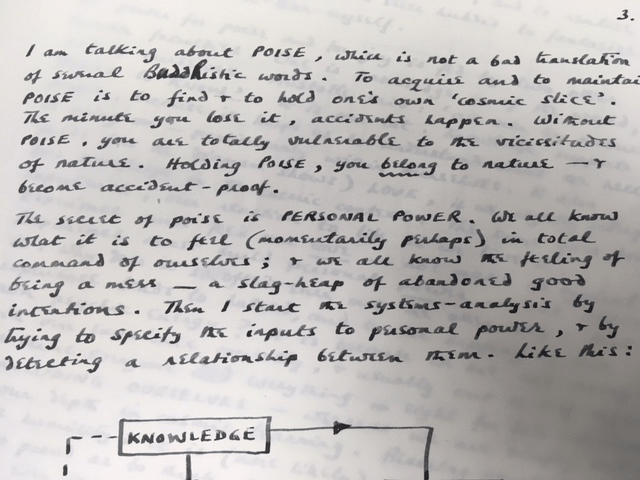 3.
I am talking about POISE, which is not a bad translation
of several Buddhistic words. To acquire and to maintai
POISE is to find & to hold one's own 'cosmic slice'.
The minute you lose it, accidents happen. Without
POISE, you are totally vulnerable to the vicissitudes
of nature. Holding POISE, you belong to nature — &
become accident-proof.
The secret of poise is PERSONAL POWER. We all know
what it is to feel (momentarily perhaps) in total
command of ourselves; & we all know the feeling of
being a mess — a slag-heap of abandoned good
intentions. Then I start the systems-analysis by
trying to specify the inputs to personal power, & by
detecting a relationship between them. Like this:
KNOWLEDGE